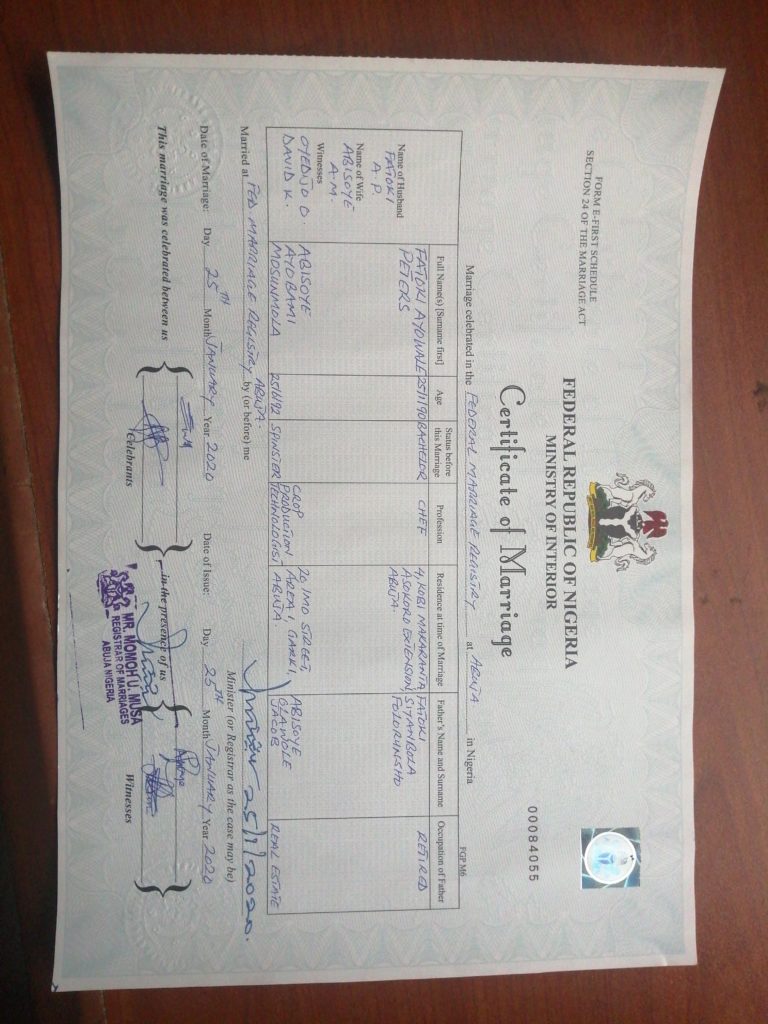 FORM E-FIRST SCHEDULE
SECTION 24 OF THE MARRIAGE ACT
FEDERAL REPUBLIC OF NIGERIA
MINISTRY OF INTERIOR
00084055
Certificate of Marriage
FGP M6
Marriage celebrated in the FEDERAL MARRIAGE REGISTRY at ABUJA in Nigeria
Full Name(s) [Surname first] Age Status before this Marriage Profession Residence at time of Marriage Father's Name and Surname Occupation of Father
Name of Husband
FATOKI
A.P.
FATOKI AYOWALE 25/1/90 BACHELOR CHEF 4, KOBI MAKARANTA FATOKI RETIRED
PETERS ASOKORO EXTENSION, SIYANBOLA
ABUJA. FOLORUNSHO
Name of Wife
ABISOYE
A.M.
Witnesses
OYEDIJO O.
DAVID K.
ABISOYE 25/6/92 SPINSTER CROP 20 IMO STREET, ABISOYE REAL ESTATE
AYOBAMI PRODUCTION AREA 1, GARKI, OLAWOLE
MOSUNMOLA TECHNOLOGIST ABUJA. JACOB
Married at FED MARRIAGE REGISTRY ABUJA. by (or before) me
25/1/2020.
Minister (or Registrar as the case may be)
Date of Marriage: Day 25TH Month JANUARY Year 2020 Date of Issue: Day 25TH Month JANUARY Year 2020
This marriage was celebrated between us
Celebrants
in the presence of us
Witnesses
MR. MOMOH U. MUSA
REGISTRAR OF MARRIAGES
ABUJA NIGERIA